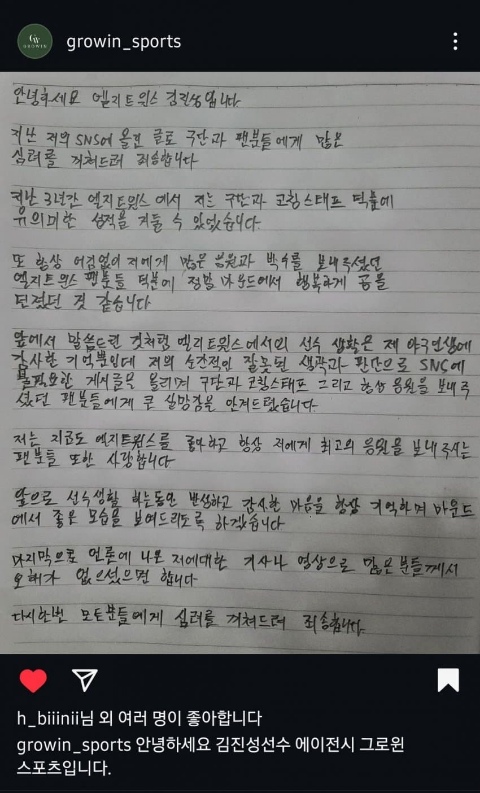 growin_sports
GROWIN
안녕하세요 엘지트윈스 김진성입니다
지난 저의 SNS에 올린 글로 구단과 팬분들에게 많은
심려를 끼쳐드려 죄송합니다
지난 3년간 엘지트윈스에서 저는 구단과 코칭스태프 덕분에
유의미한 성적을 거둘 수 있었습니다.
또 항상 어김없이 저에게 많은 응원과 박수를 보내주셨던
엘지트윈스 팬분들 덕분에 정말 마운드에서 행복하게 공을
던졌던 것 같습니다
앞에서 말씀드린 것처럼 엘지트윈스에서의 선수 생활은 제 야구인생에
감사한 기억뿐인데 저의 순간적인 잘못된 생각과 판단으로 SNS에
불필요한 게시글을 올리며 구단과 코칭스태프 그리고 항상 응원을 보내주
셨던 팬분들에게 큰 실망감을 안겨드렸습니다
저는 지금도 엘지트윈스를 좋아하고 항상 저에게 최고의 응원을 보내주시는
팬분들 또한 사랑합니다
앞으로 선수생활 하는동안 반성하고 감사한 마음을 항상 기억하며 마운드
에서 좋은 모습을 보여드리도록 하겠습니다
마지막으로 언론에 나온 저에대한 기사나 영상으로 많은 분들께서
오해가 없으셨으면 합니다
다시한번 모든분들에게 심려를 끼쳐드려 죄송합니다.
h_biiinii님 외 여러 명이 좋아합니다
growin_sports 안녕하세요 김진성선수 에이전시 그로윈
스포츠입니다.